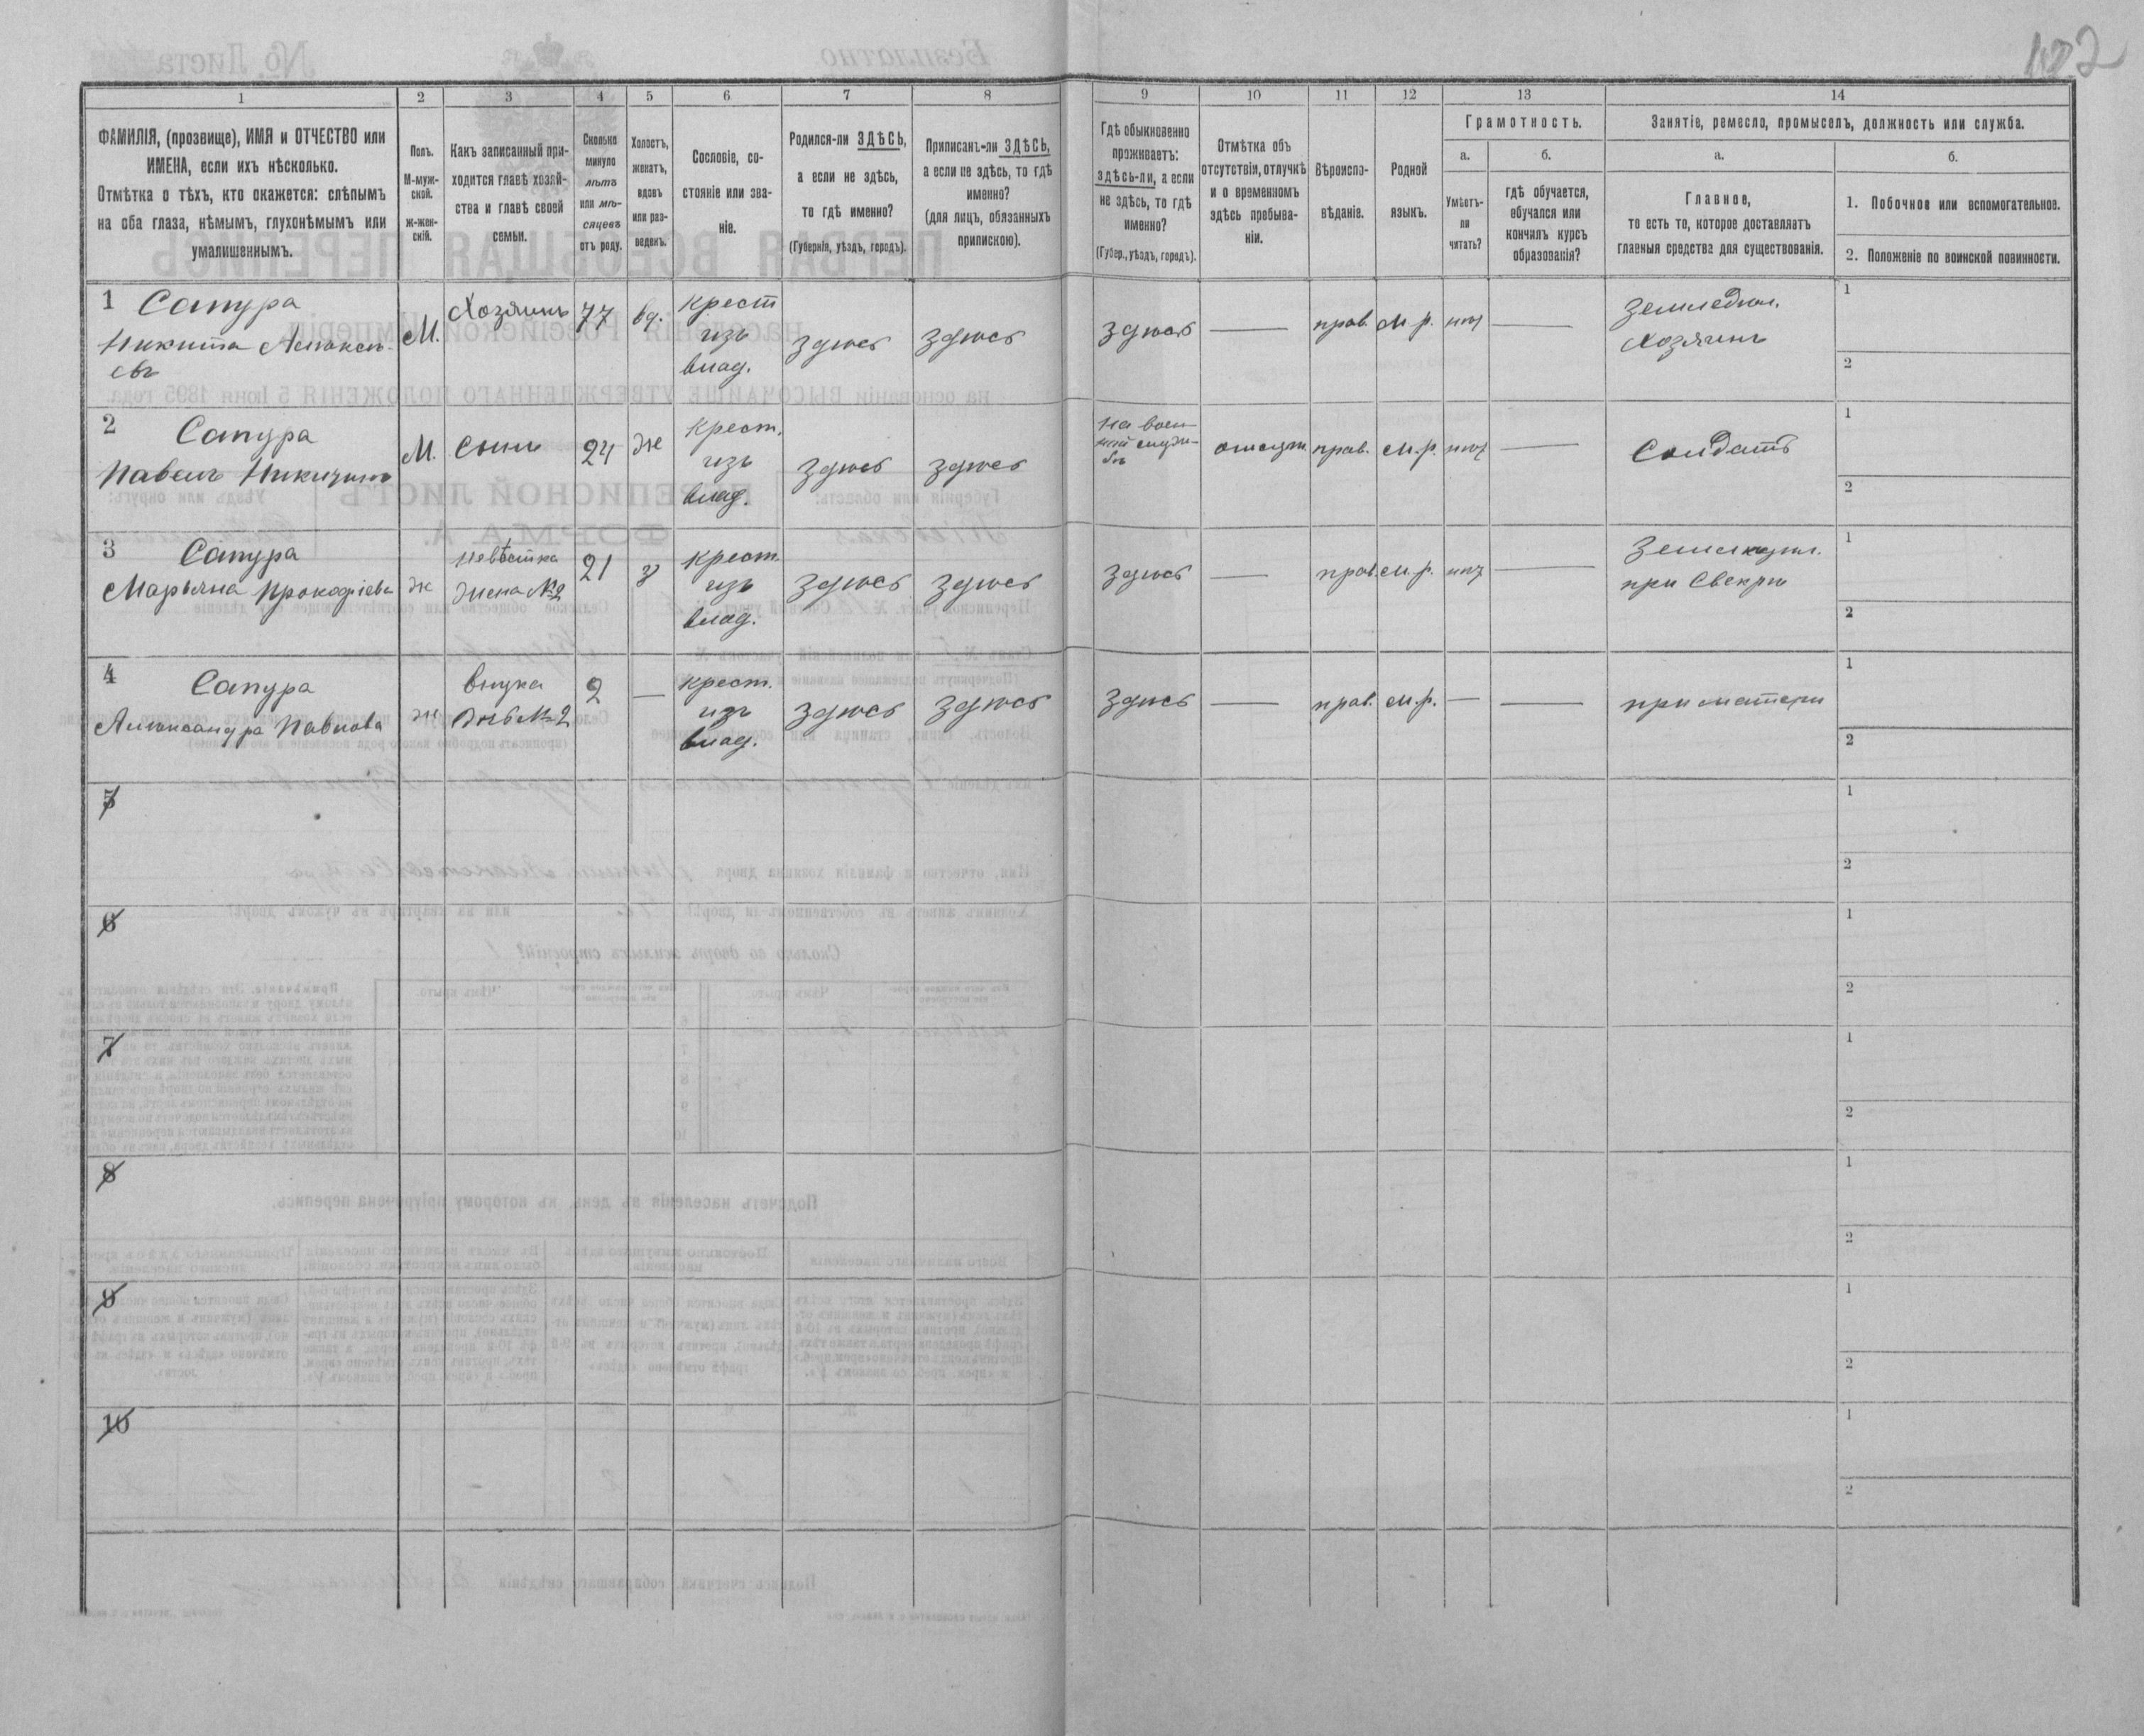 122
1 2 3 4 5 6 7 8 9 10 11 12 13 14
ФАМИЛІЯ, (прозвище), ИМЯ и ОТЧЕСТВО или
ИМЕНА, если ихъ нѣсколько.
Отмѣтка о тѣхъ, кто окажется: слѣпымъ
на оба глаза, нѣмымъ, глухонѣмымъ или
умалишеннымъ.
Полъ.
М-муж-
ской.
ж-жен-
скій.
Какъ записанный при-
ходится главѣ хозяй-
ства и главѣ своей
семьи.
Сколько
минуло
лѣтъ
или мѣ-
сяцевъ
отъ роду.
Холостъ,
женатъ,
вдовъ
или раз-
веденъ.
Сословіе, со-
стояніе или зва-
ніе.
Родился-ли ЗДѢСЬ,
а если не здѣсь,
то гдѣ именно?
(Губернія, уѣздъ, городъ).
Приписанъ-ли ЗДѢСЬ,
а если не здѣсь, то гдѣ
именно?
(для лицъ, обязанныхъ
припискою).
Гдѣ обыкновенно
проживаетъ:
здѣсь-ли, а если
не здѣсь, то гдѣ
именно?
(Губер., уѣздъ, городъ).
Отмѣтка объ
отсутствіи, отлучкѣ
и о временномъ
здѣсь пребыва-
ніи.
Вѣроиспо-
вѣданіе.
Родной
языкъ.
Грамотность.
а.
Умѣетъ-
ли
читать?
б.
гдѣ обучается,
обучался или
кончилъ курсъ
образованія?
Занятіе, ремесло, промыселъ, должность или служба.
а.
Главное,
то есть то, которое доставляетъ
главныя средства для существованія.
б.
1. Побочное или вспомогательное.
2. Положеніе по воинской повинности.
1 Сапура
Никита Алексѣ-
евъ
М.
Хозяинъ
77
вд.
крест
изъ
влад.
здѣсь
здѣсь
здѣсь
—
прав.
м. р.
нѣт
—
Земледѣл.
Хозяинъ
1
2
2 Сапура
Павелъ Никитинъ
М.
сынъ
24
же
крест.
изъ
влад.
здѣсь
здѣсь
на воен-
ной служ-
бѣ
отсутв.
прав.
м. р.
нѣт
—
Солдатъ
1
2
3 Сапура
Марьяна Прокофіева
ж
невѣстка
жена №2
21
з
крест.
изъ
влад.
здѣсь
здѣсь
здѣсь
—
прав.
м. р.
нѣт
—
при Свекрѣ
1
2
4 Сапура
Александра Павлова
ж
внука
дчь №2
2
—
крест.
изъ
влад.
здѣсь
здѣсь
здѣсь
—
прав.
м. р.
—
—
при матери
1
2
5
1
2
6
1
2
7
1
2
8
1
2
9
1
2
10
1
2